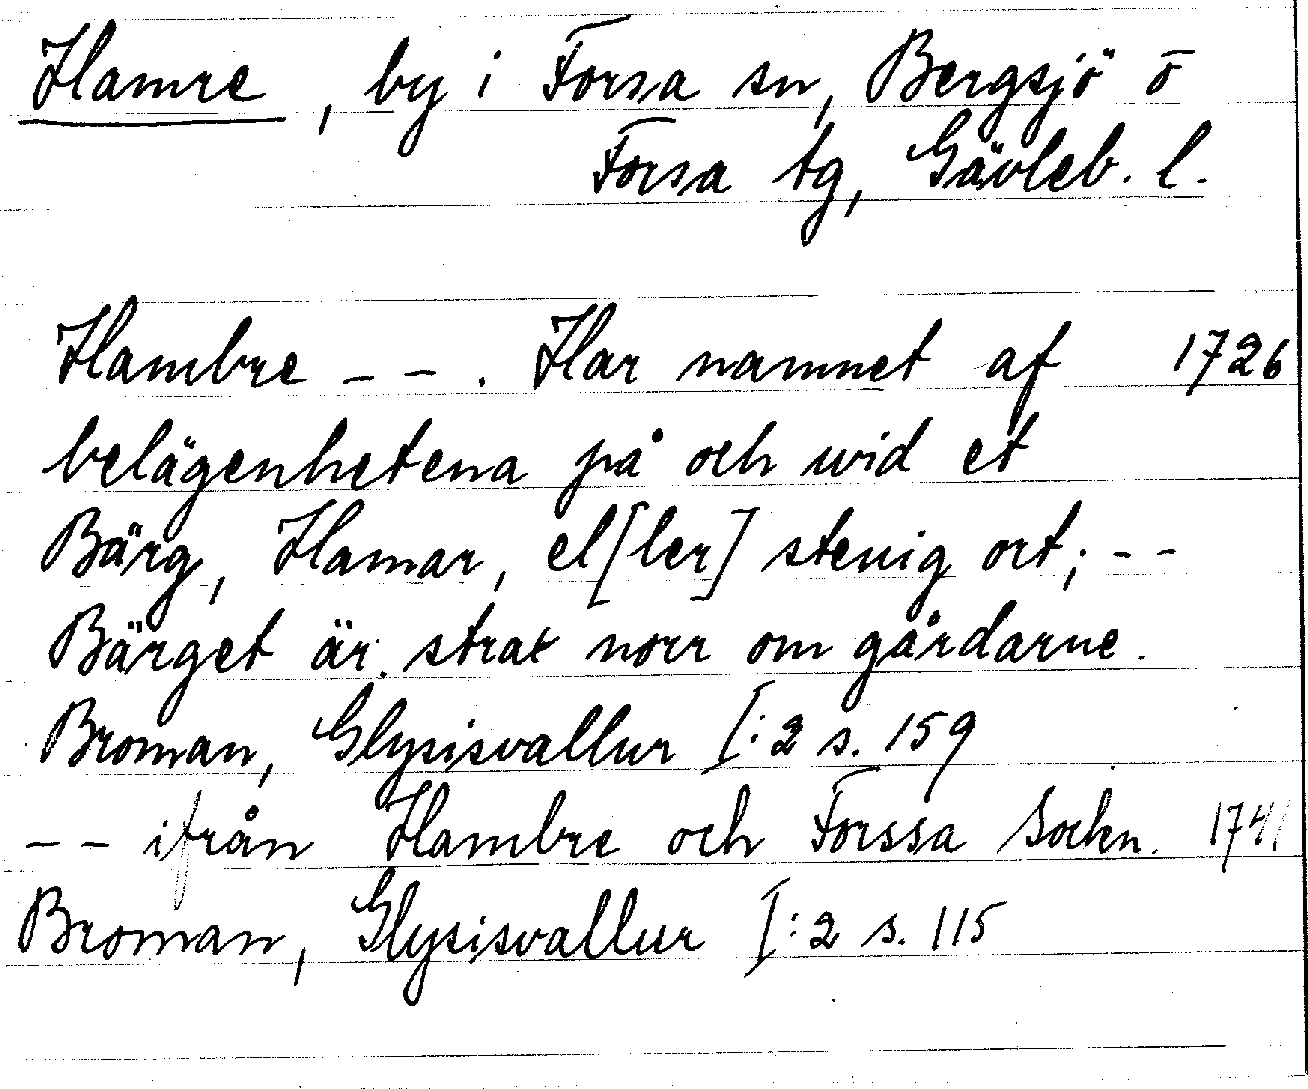 Hamre, by i Forsa sn, Bergsjö o
Forsa tg, Gävleb. l.
Hambre - - . Har namnet af 1726
belägenhetena på och wid et
Bärg, Hamar, el[ler] stenig ort; - -
Bärget är strax norr om gårdarne.
Broman, Glysisvallur I:2 s. 159
- - ifrån Hambre och Forssa Sockn. 1741
Broman, Glysisvallur I:2 s. 115